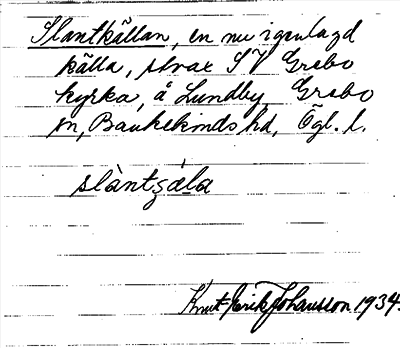 Slantkällan, en nu igenlagd
källa, strax SV Grebo
kyrka, å Lundby, Grebo
sn, Bankekinds hd, Ögl. l.
slàntʒæ̀la
Knut-Erik Johansson 1934.